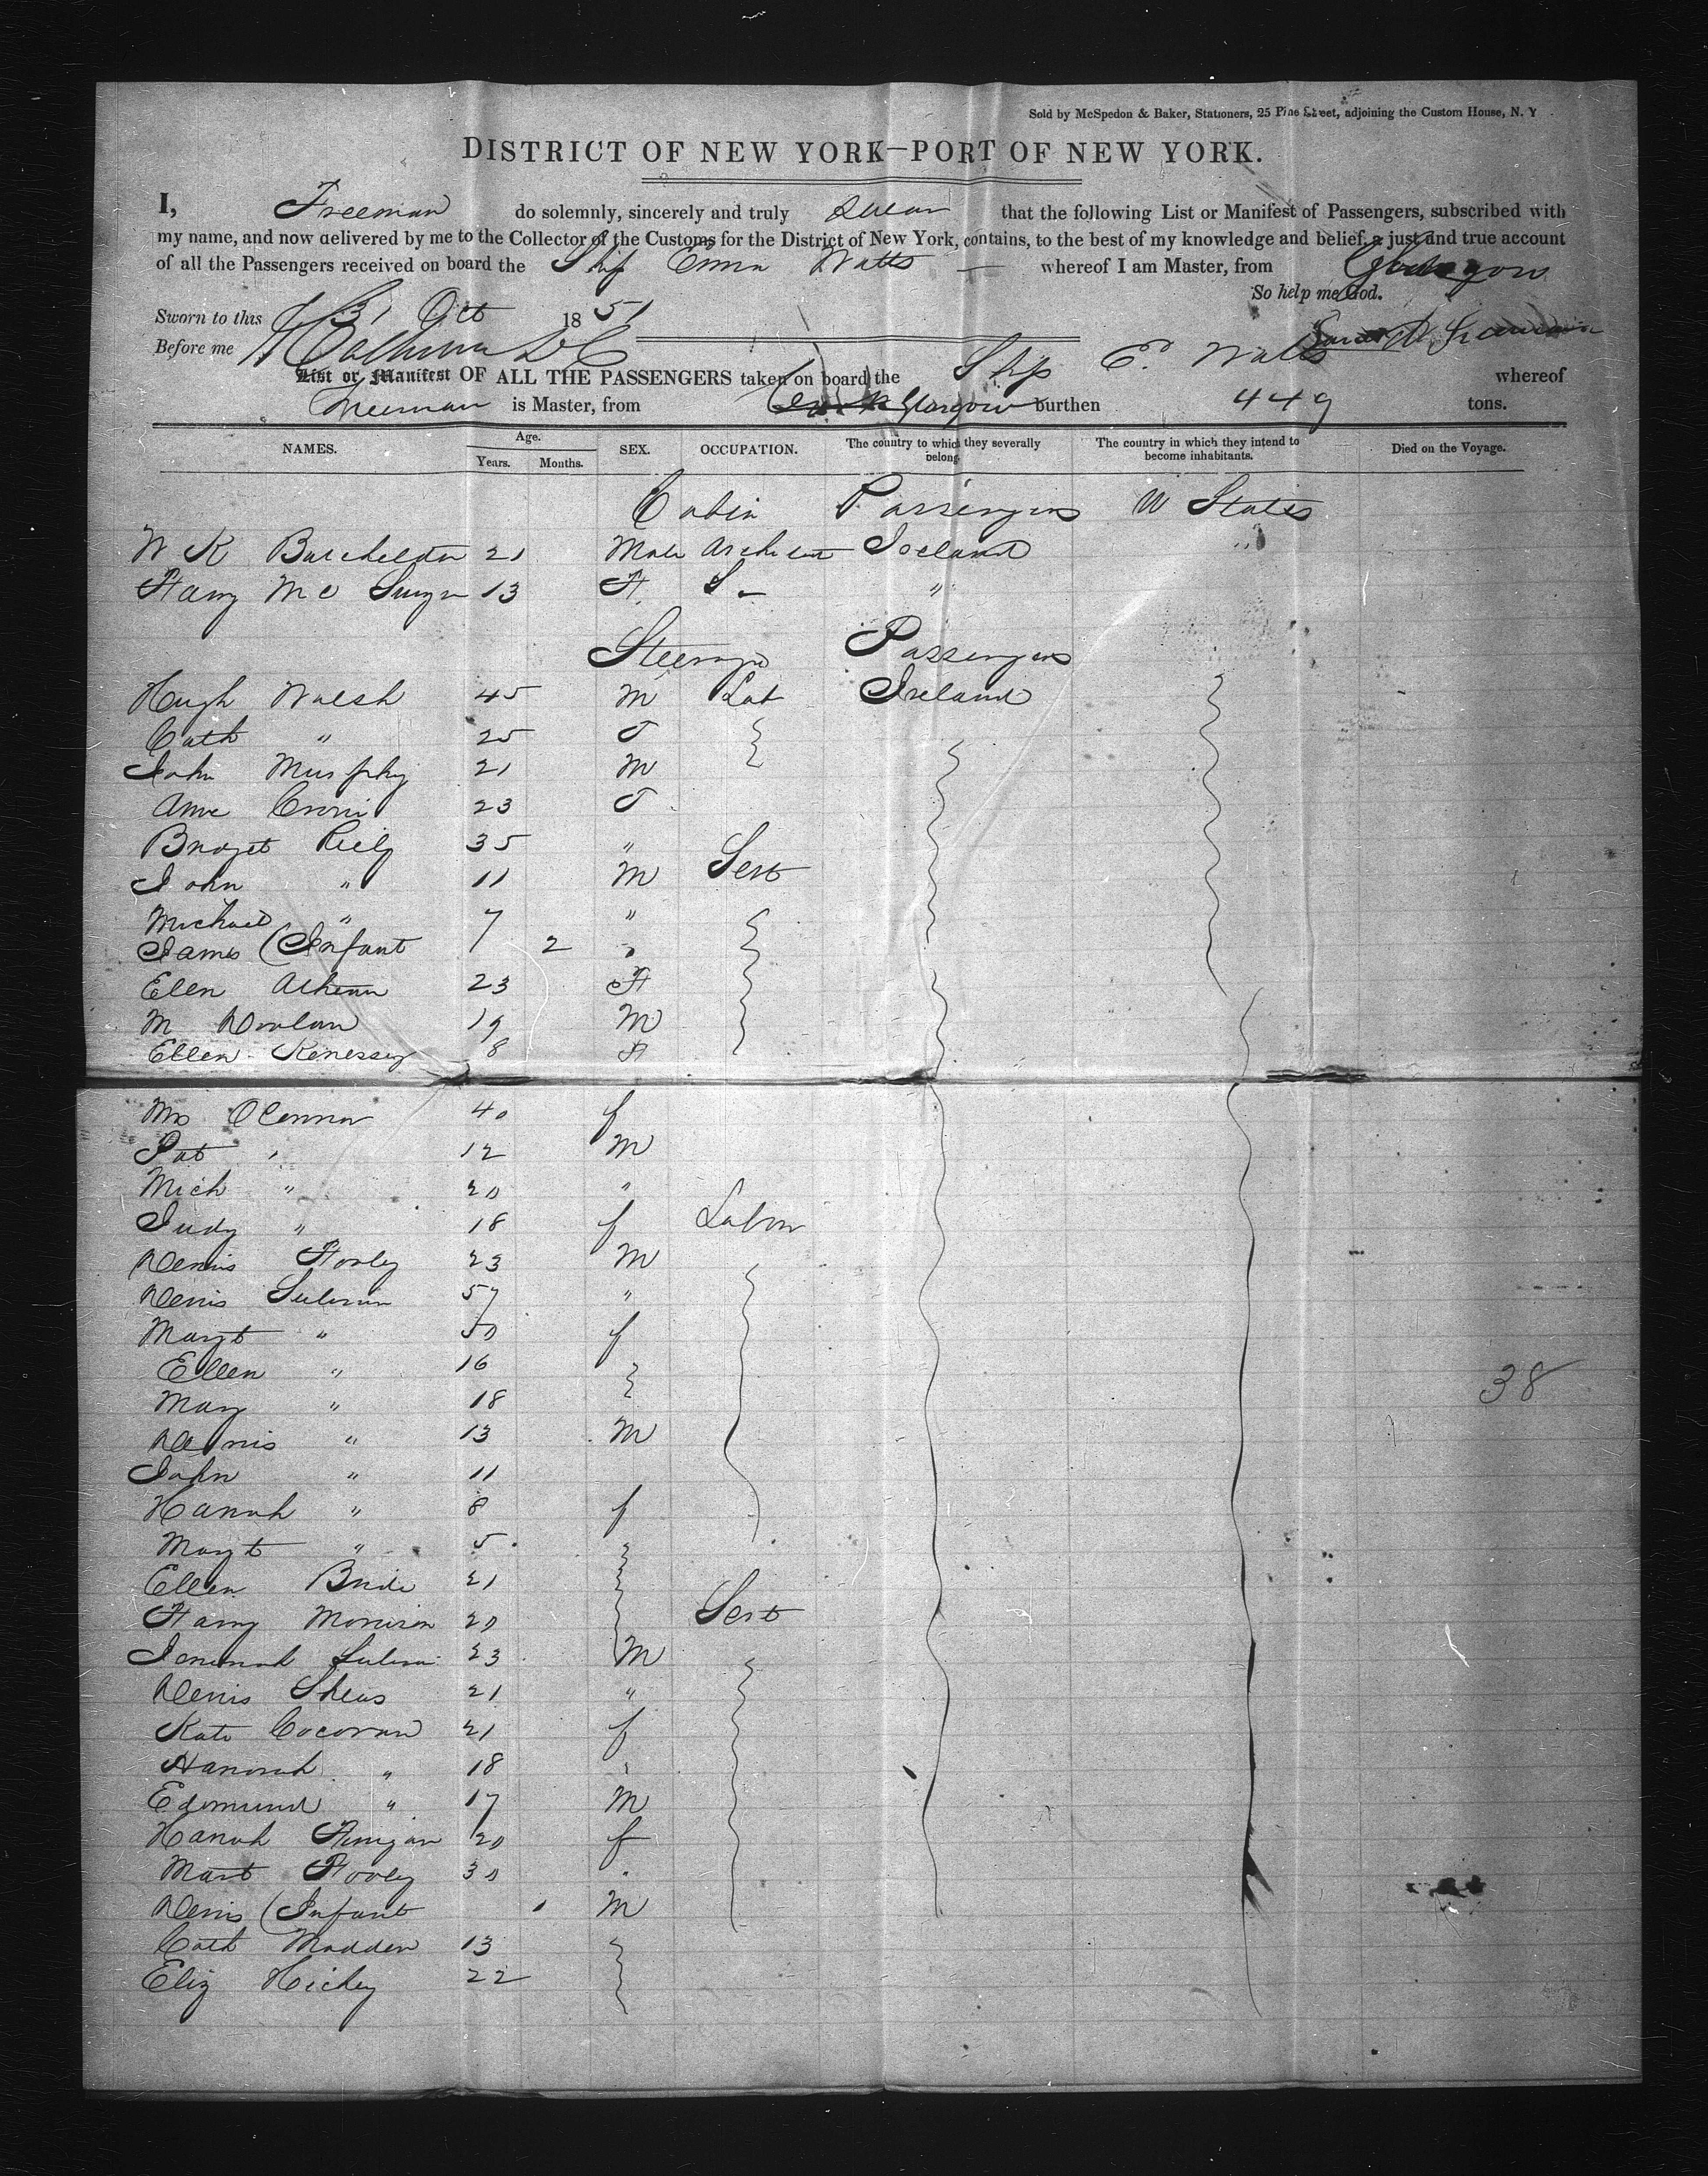 Sold by McSpedon & Baker, Stationers, 25 Pine Street, adjoining the Custom House, N. Y
DISTRICT OF NEW YORK—PORT OF NEW YORK.
I, Freeman do solemnly, sincerely and truly swear that the following List or Manifest of Passengers, subscribed with
my name, and now delivered by me to the Collector of the Customs for the District of New York, contains, to the best of my knowledge and belief, a just and true account
of all the Passengers received on board the Ship Emma Watts — whereof I am Master, from Glasgow
So help me God.
Sworn to this 31 Oct 1851
Before me
List or Manifest OF ALL THE PASSENGERS taken on board the Ship E. Watts whereof
Freeman is Master, from Glasgow burthen 449 tons.
NAMES. Age. Years. Months. SEX. OCCUPATION. The country to which they severally belong. The country in which they intend to become inhabitants. Died on the Voyage.
Cabin Passengers U States
W K 21 Male Architect Ireland "
13 F. S — "
Steerage Passengers
Hugh Walsh 45 M Lab Ireland
Cath " 25 F
John Murphy 21 M
Anne 23 F
Bridget Rielly 35 "
John " 11 M Servt
Michael " 7 "
James (Infant 2 "
Ellen 23 F
M Doolan 19 M
Ellen 8 F
Mrs OConnor 40 f
Pat " 12 M
Mich " 20 "
Judy " 18 f Labor
Dennis Fooley 23 M
Denis Sulivan 57 "
Margt " 50 f
Ellen " 16
Mary " 18
Dennis " 13 M
John " 11
Hanah " 8 f
Margt " 5
Ellen Bride 21
Fanny Morrison 20 Servt
Jeremiah Sulivan 23 M
Denis Sheas 21 "
Kate Cocoran 21 f
Hanorah " 18 "
Edmund " 17 M
Hanah Finigan 20 f
Fooley 30 "
Denis (Infant 1 M
Cath Madden 13
Eliz Hickey 22
38